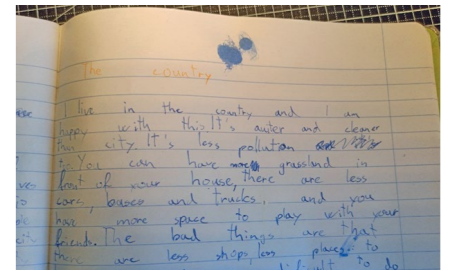 The country
I live in the country and I am
happy with this. It's quiter and cleaner
than city. It's less pollution
to. You can have more grassland in
front of your house, there are less
cars, buses and trucks. and you
have more space to play with your
friends. The bad things are that
there are less shops, less places to
difficult to do